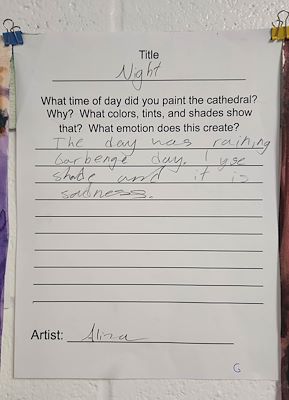 Title
Night
What time of day did you paint the cathedral?
Why? What colors, tints, and shades show
that? What emotion does this create?
The day was raining
Garbenge day. I yse
shade and it is
sadness.
Artist: Aliza
G